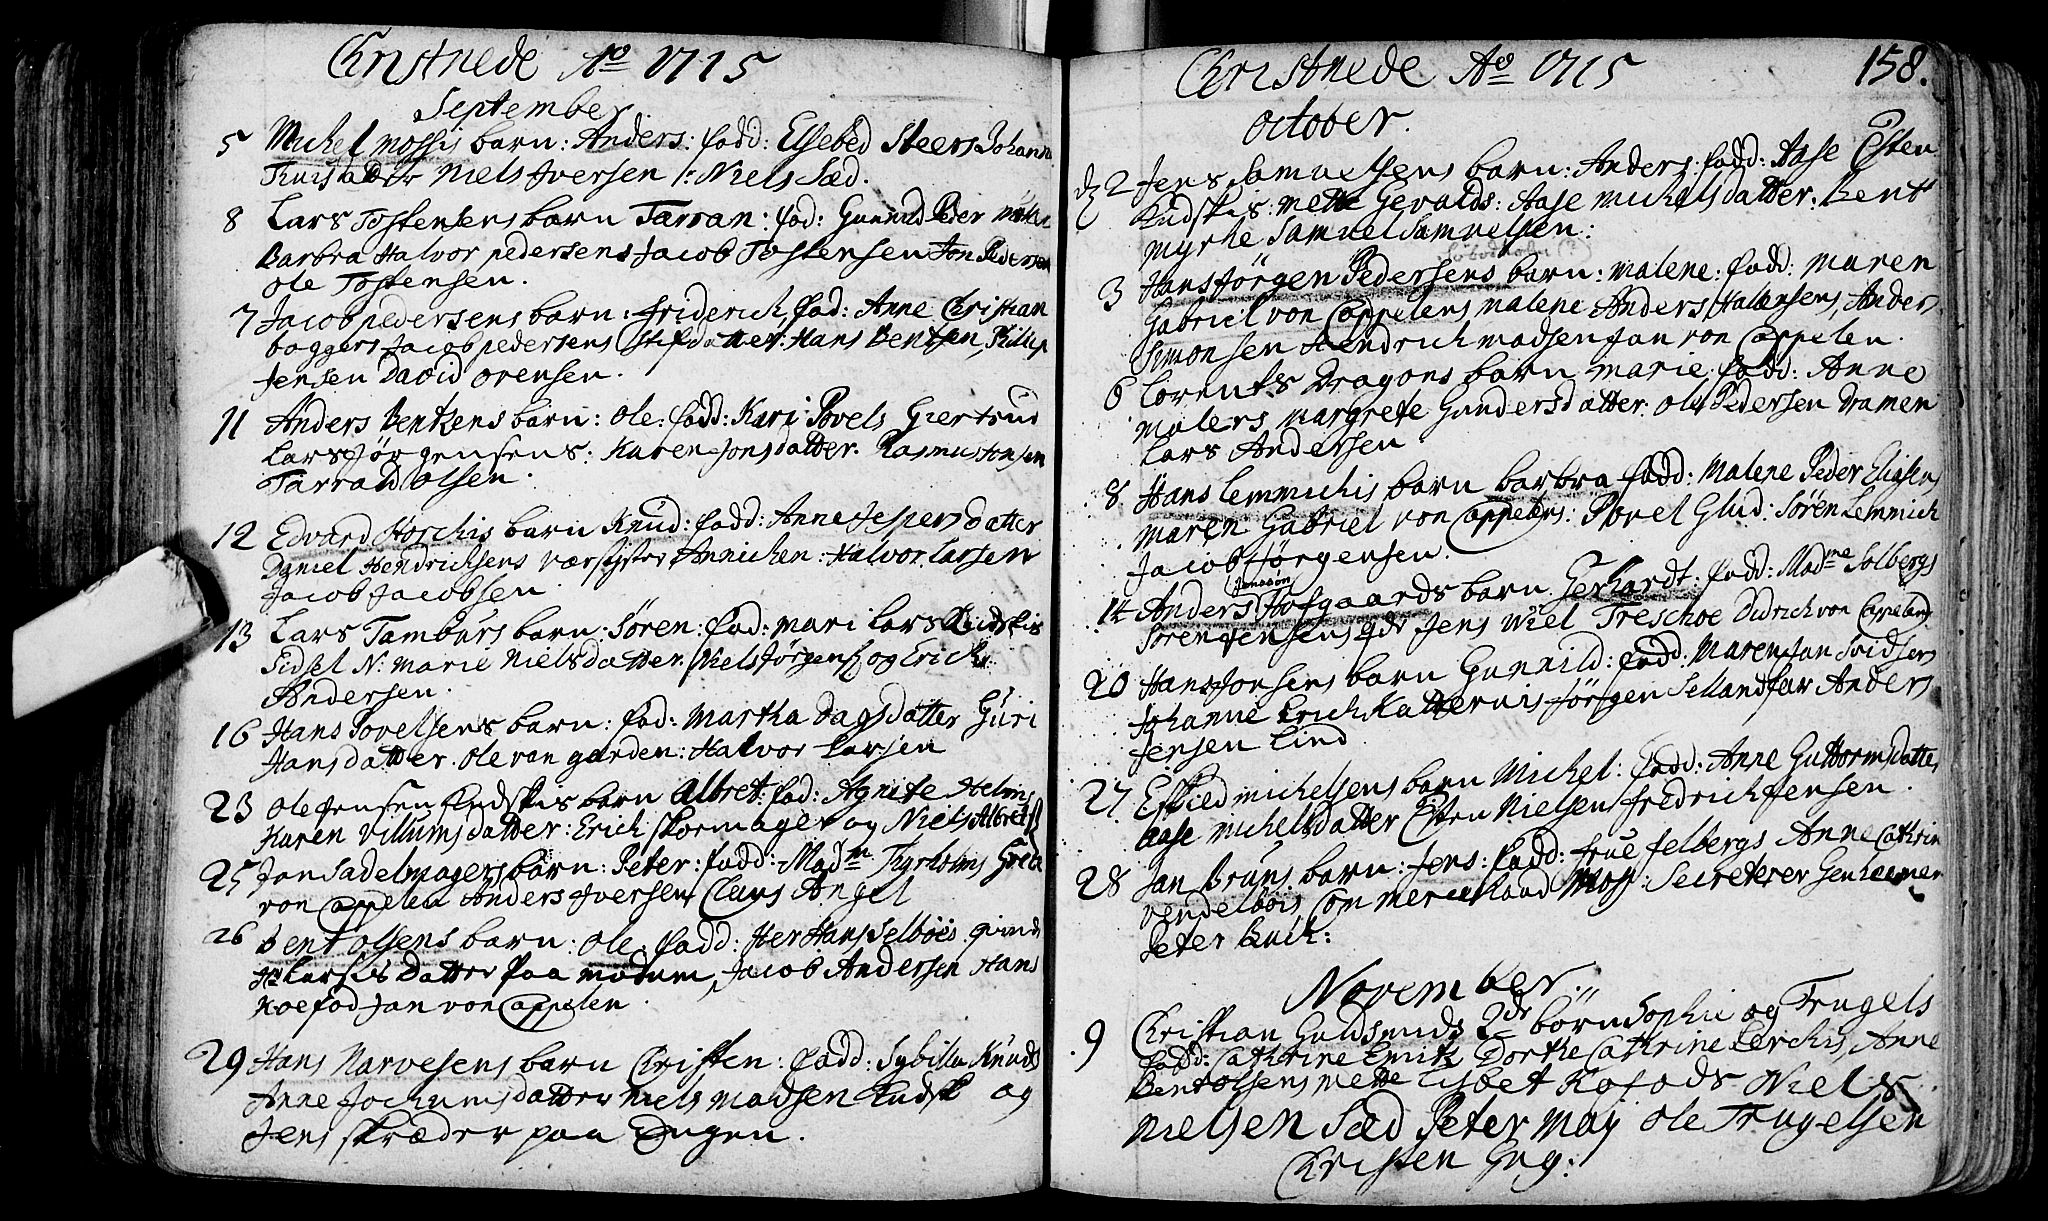 Christnede Ao 1715
September
5 Michel mossis barn: Anders: fadd: Elsebed Steers Johanna
Knisdatter Niels Iversen /: Niels Sæd.
8 Lars Tostensens barn Tarran: fad: Gunnild Peder
Barbra Halvor pedersens Jacob Tostensen Jon Pedersen
ole Tostensen.
7 Jacob pedersens barn: friderich fad: Anne Christian
baggers Jacob pedersens Stifdatter: Hans Bentsen, Pillip
Jensen David orensen.
11 Anders Bentsens barn: ole: fadd: Kari Povels Giertrud
Lars Jörgensens: Karen Jonsdatter. Rasmus Jonsen
Tarrald olsen.
12 Edvard Horchis barn Knud: fadd: Anne Jespersdatter
Daniel Hendrichsens værsyster Annichen: Halvor Larsen
Jacob Jacobsen
13 Lars Tamburs barn: Sören: fad: mari Lars Kudskis
Sidsel N: marie Nielsdatter. Niels Jörgens: og Erich
Andersen.
16 Hans Povelsens barn: fad: Martha Dagsdatter Guri
Hansdatter. ole von garden: Halvor Larsen
23 ole Jensen Kudskis barn Albret: fad: Agnite Helms
Karen Villumsdatter: Erich skomager og Niels Albrets
25 Jan Sadelmagers barn: Peter: fadd: Madm Thyrholms Greta
von Cappelen Anders Iversen Claus Angel
26 Bent olsens barn: ole fadd: Her Hans Selboes qvinde
Hr Larsis Datter paa modum, Jacob Andersen Hans
Koefod Jan von Cappelen.
29 Hans Narvesens barn Christen: fadd: Sybilla Knuds
Anne Jochumsdatter Niels Madsen Kudsk og
Jens skræder paa Engen.
Christnede Ao 1715
158.
October.
2 Jens Samuelsens barn: Anders: fadd: Aase Esten
Kudskis: mette Gevalds: Aase michelsdatter: Bent
myrhe Samuel Samuelsen:
3 Hans Jörgen Pedersens barn: malene: fadd: maren
Gabriel von Cappelens malene Anders Halvensens, Anders
Simonsen Hendrich madsen Jan von Cappelen.
6 Lorents Dragons barn marie: fadd: Anne
malers margrete Gundersdatter ole Pedersen Dramen
Lars Andersen
8 Hans Lemmichis barn barbra fadd: Malene Peder Eliasens
maren Gabriel von Cappelens: Povel Glud: Sören Lemmich
Jacob Jörgensen.
14 Anders Jonassön Hofgaards barn Gerhardt: fadd: Madme Solbergs
Sören Jensens gdr Jens Wiel Treschoe Didrich von Cappelens
20 Hans Jonsens barn Gunnild: fadd: Maren Jan Svidsens
Johanne Erich Kattervis Jörgen Sellandfar Anders
Jensen Lind
27 Eskild michelsens barn Michel: fadd: Anne Guttormsdatter
Aase michelsdatter Esten Nielsen fredrich Jensen.
28 Jan Bruns barn: Jens: fadd: frue felbergs Anne Cathrin
Vendelbois Commerceraad Moss: Secreterer Genheimer
Peter Buch:
November.
9 Christian Guldsmids 2de börn Sophie og Trugels
fadd: Cathrine Emitz Dorthe Cathrine Lerchis, Anne
Bentolsens mette Lisbet Kofods Niels
Nielsen Sæd Peter may ole Trugelsen
Christen Gug: